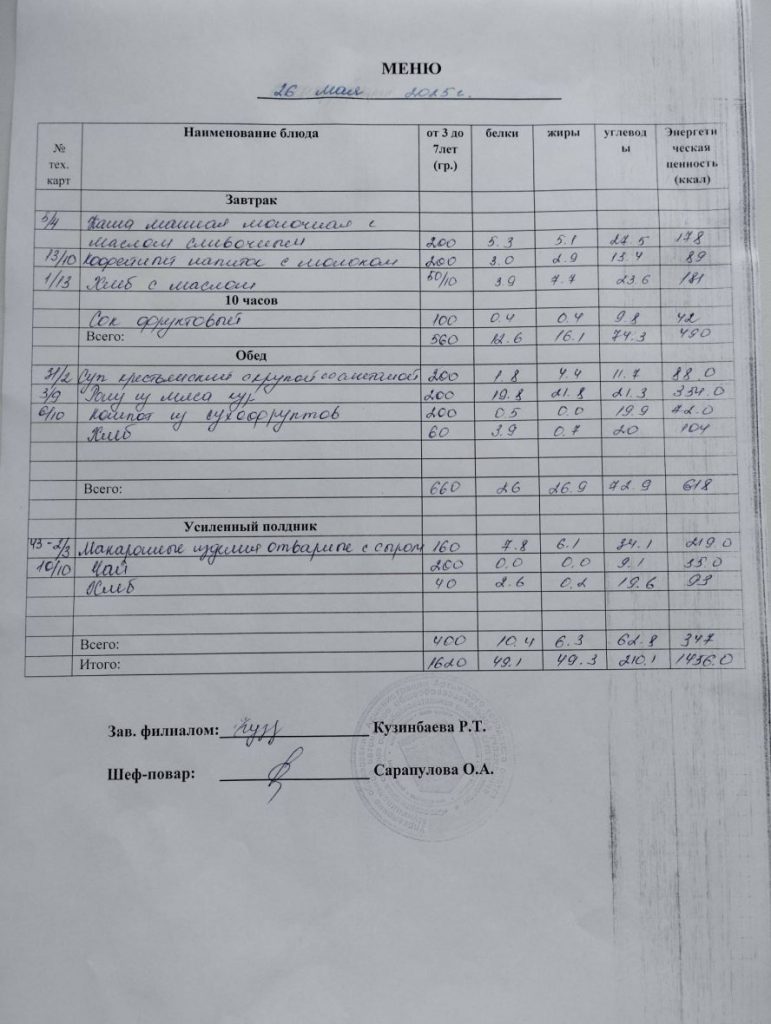 МЕНЮ
26 мая 2025 г.
№ тех. карт Наименование блюда от 3 до 7лет (гр.) белки жиры углеводы Энергетическая ценность (ккал)
Завтрак
5/4 Каша манная молочная с
маслом сливочным 200 5.3 5.1 27.5 178
13/10 Кофейный напиток с молоком 200 3.0 2.9 13.4 89
1/13 Хлеб с маслом 50/10 3.9 7.7 23.6 181
10 часов
Сок фруктовый 100 0.4 0.4 9.8 42
Всего: 560 12.6 16.1 74.3 490
Обед
31/2 Суп крестьянский с крупой со сметаной 200 1.8 4.4 11.7 88.0
3/9 Рагу из мяса кур 200 19.8 21.8 21.3 354.0
6/10 Компот из сухофруктов 200 0.5 0.0 19.9 72.0
Хлеб 60 3.9 0.7 20 104
Всего: 660 26 26.9 72.9 618
Усиленный полдник
43-2/3 Макаронные изделия отварные с сыром 160 7.8 6.1 34.1 219.0
10/10 Чай 200 0.0 0.0 9.1 35.0
Хлеб 40 2.6 0.2 19.6 93
Всего: 400 10.4 6.3 62.8 347
Итого: 1620 49.1 49.3 210.1 1456.0
Зав. филиалом: Кузинбаева Р.Т.
Шеф-повар: Сарапулова О.А.